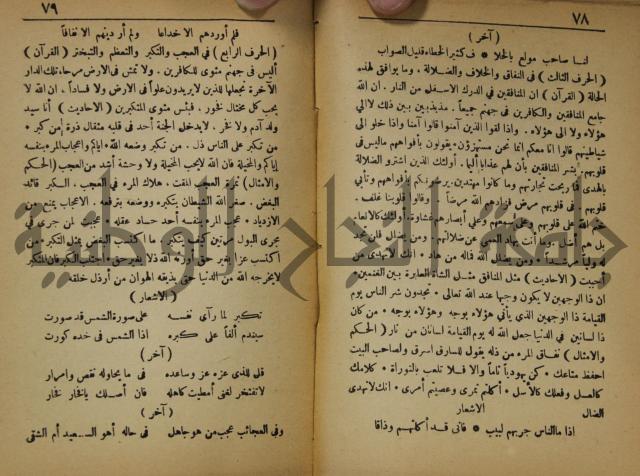 ٧٨
( آخر )
لنا صاحب مولع بالخلا * ف كثير الخطاء قليل الصواب
( الحرف الثالث ) في النفاق والخلاف والضلالة . وما يوافق لهذه
الحالة ( القرآن ) ان المنافقين في الدرك الاسفل من النار . ان الله
جامع المنافقين والكافرين في جهنم جميعاً . مذبذبين بين ذلك لا الى
هؤلاء ولا الى هؤلاء . واذا لقوا الذين آمنوا قالوا آمنا واذا خلوا الى
شياطينهم قالوا انا معكم انما نحن مستهزؤن . يقولون بأفواههم ماليس في
قلوبهم . بشر المنافقين بأن لهم عذابا أليما . أولئك الذين اشتروا الضلالة
بالهدى فما ربحت تجارتهم وما كانوا مهتدين . يرضونكم بأفواههم وتأبى
قلوبهم . في قلوبهم مرض فزادهم الله مرضاً . وقالوا قلوبنا غلف .
الله على قلوبهم وعلى سمعهم وعلى أبصارهم غشاوة . أولئك كالانعام
بل هم أضل . وما أنت بهاد العمي عن ضلالتهم . ومن يضلل فلن تجد
له وليا مرشداً . ومن يضلل الله فما له من هاد . انك لا تهدي من
أحببت ( الأحاديث ) مثل المنافق مثل الشاة العايرة بين الغنمين .
ان ذا الوجهين لا يكون وجها عند الله تعالى . تجدون شر الناس يوم
القيامة ذا الوجهين الذي يأتي هؤلاء بوجه وهؤلاء بوجه . من كان
ذا لسانين في الدنيا جعل الله له يوم القيامة لسانان من نار ( الحكم
والامثال ) نفاق المرء من ذله يقول للسارق اسرق ولصاحب البيت
احفظ متاعك . كن يهودياً تاماً والا فلا تلعب بالتوراة . كلامك
كالعسل وفعلك كالأسل . أكلتم تمري وعصيتم أمري . انك لا تهدي
الضال الاشعار
اذا ما الناس جربهم لبيب * فاني قد أكلتهم وذاقا
٧٩
فلم أوردهم الا خداعا ولم أر دينهم الا نفاقاً
( الحرف الرابع ) في العجب والتكبر والتعظم والتبختر ( القرآن )
أليس في جهنم مثوى للكافرين . ولا تمش في الارض مرحا . تلك الدار
الآخرة نجعلها للذين لا يريدون علواً في الارض ولا فساداً . ان الله لا
يحب كل مختال فخور . فبئس مثوى المتكبرين ( الاحاديث ) أنا سيد
ولد آدم ولا فخر . لا يدخل الجنة أحد في قلبه مثقال ذرة من كبر .
من تكبر على الناس ذل . من تكبر وضعه الله . اياكم واعجاب المرء بنفسه
إياكم والمخيلة فان الله لا يحب المخيلة ولا وحشة أشد من العجب ( الحكم
والامثال ) ثمرة العجب المقت . هلاك المرء في العجب . الكبر قائد
البغض . صغر الله الشيطان بتكبره ووضعه بترفعه . الاعجاب يمنع من
الازدياد . عجب المرء بنفسه أحد حساد عقله . عجبت لمن جرى في
مجرى البول مرتين كيف يتكبر . ما اكتسب البغض بمثل التكبر . من
اكتسب عزا بغير حق أورثه الله ذلا بغير حق . اجتنب التكبر فان المتكبر
لا يخرجه الله من الدنيا حتى يذيقه الهوان من أرذل خلقه
( الاشعار )
تكبر لما رآى نفسه على صورة الشمس قد صورت
سيندم ألفاً على كبره اذا الشمس في خده كورت
( آخر )
قل للذي عزه عز وساعده في ما يحاوله نقض وامرار
لا تفتخر لغنى أمطيت كاهله فان أصلك يا فخار فخار
( آخر )
وفي العجائب عجب من هو جاهل في حاله أهو السعيد أم الشقي
جامعة النجاح الوطنية